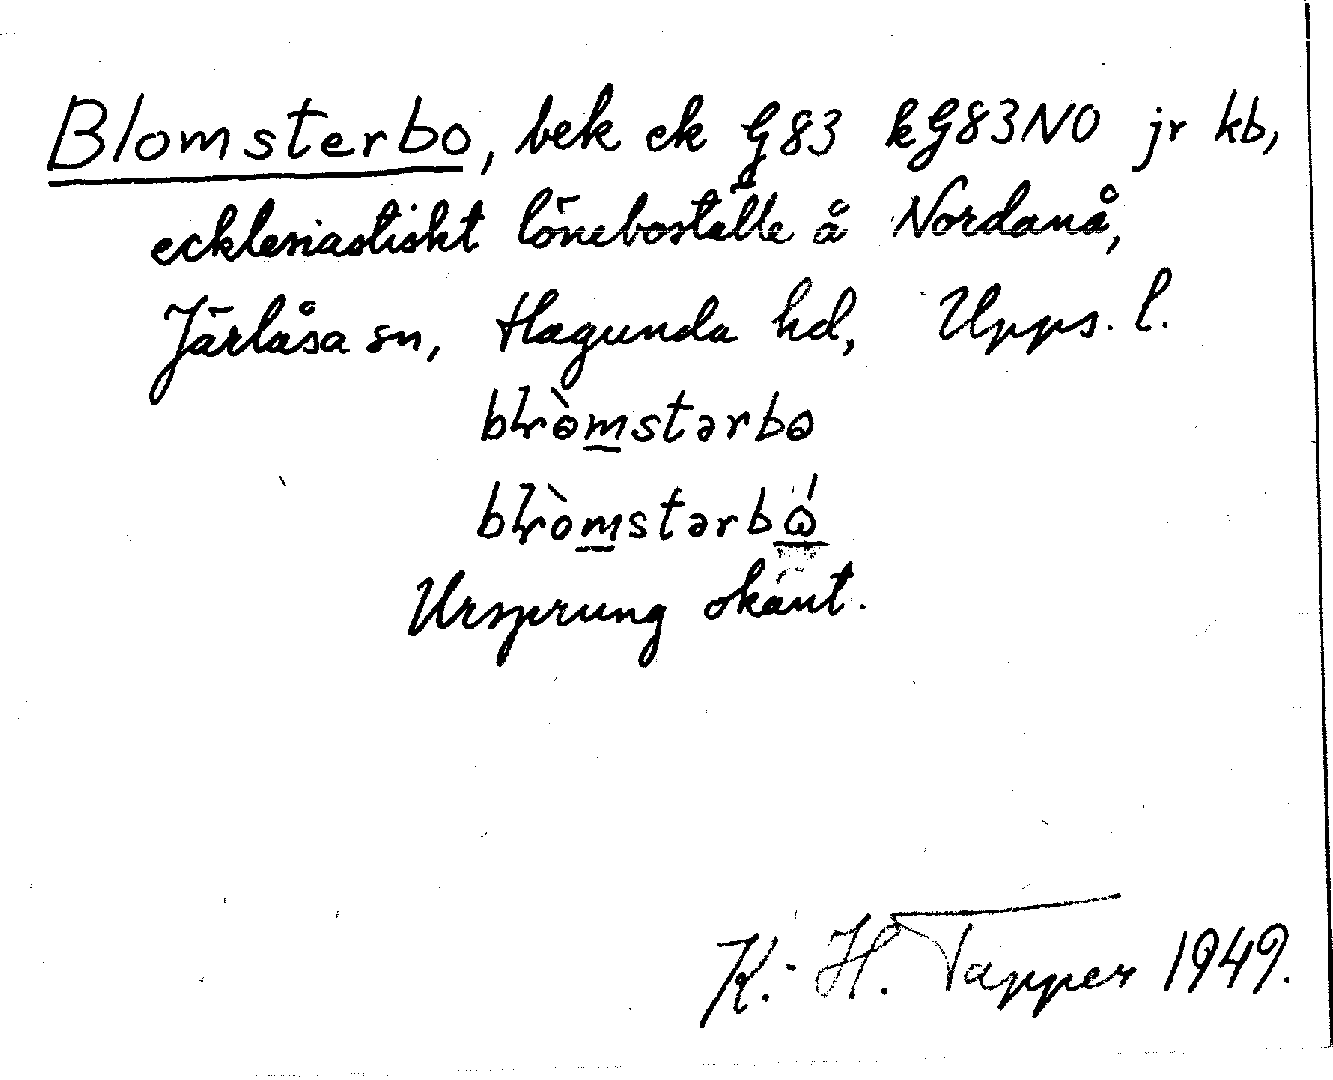 Blomsterbo, bek ek G83 kG83NO jr kb,
ecklesiastiskt löneboställe å Nordanå,
Järlåsa sn, Hagunda hd, Upps. l.
Ursprung okänt.
K.-H. Tapper 1949.